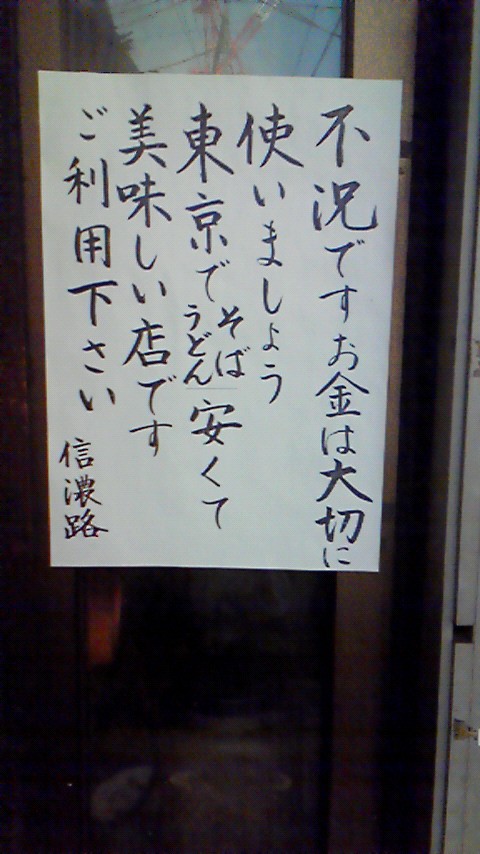 不況ですお金は大切に
使いましょう
東京でそばうどん安くて
美味しい店です
ご利用下さい
信濃路